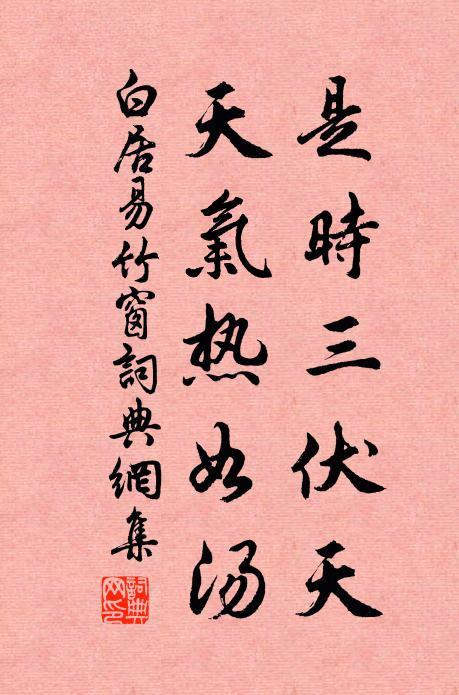 是時三伏天
天氣热如汤
白居易竹窗詞典網集
詞典网印